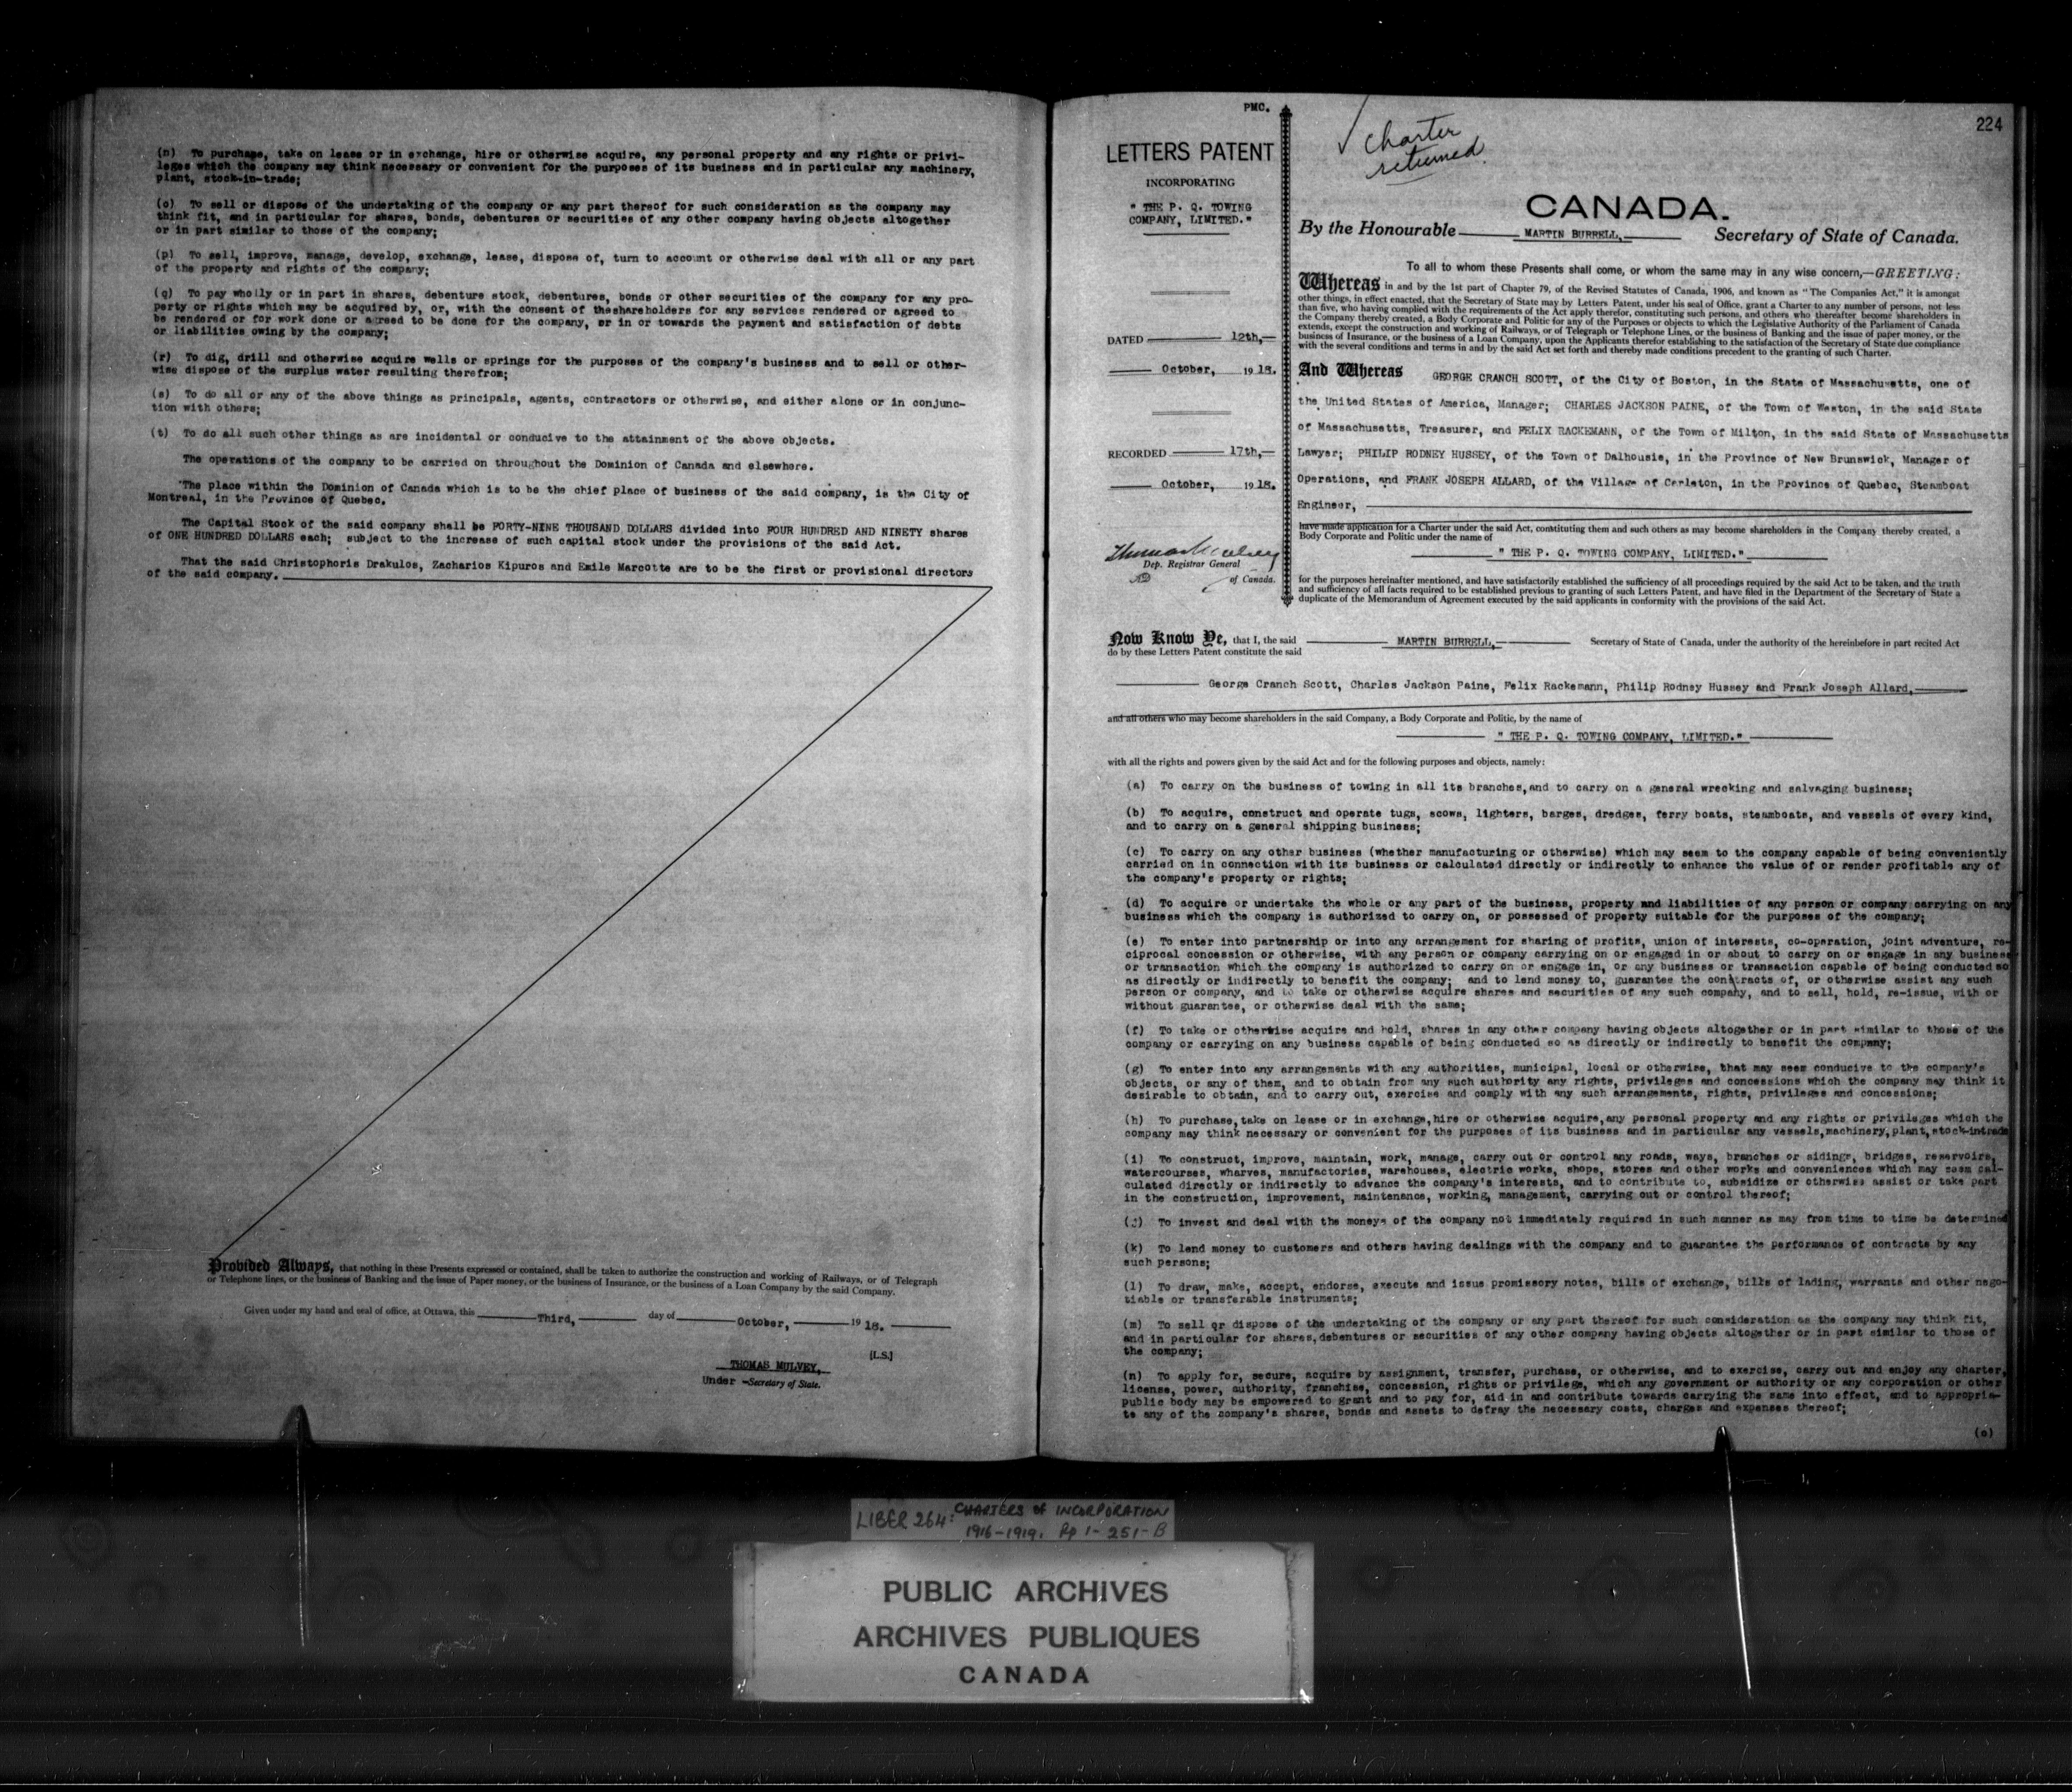 (n) To purchase, take on lease or in exchange, hire or otherwise acquire, any personal property and any rights or privi-
leges which the company may think necessary or convenient for the purposes of its business and in particular any machinery,
plant, stock-in-trade;
(o) To sell or dispose of the undertaking of the company or any part thereof for such consideration as the company may
think fit, and in particular for shares, bonds, debentures or securities of any other company having objects altogether
or in part similar to those of the company;
(p) To sell, improve, manage, develop, exchange, lease, dispose of, turn to account or otherwise deal with all or any part
of the property and rights of the company;
(q) To pay wholly or in part in shares, debenture stock, debentures, bonds or other securities of the company for any pro-
perty or rights which may be acquired by, or, with the consent of theshareholders for any services rendered or agreed to
be rendered or for work done or agreed to be done for the company, or in or towards the payment and satisfaction of debts
or liabilities owing by the company;
(r) To dig, drill and otherwise acquire wells or springs for the purposes of the company's business and to sell or other-
wise dispose of the surplus water resulting therefrom;
(s) To do all or any of the above things as principals, agents, contractors or otherwise, and either alone or in conjunc-
tion with others;
(t) To do all such other things as are incidental or conducive to the attainment of the above objects.
The operations of the company to be carried on throughout the Dominion of Canada and elsewhere.
The place within the Dominion of Canada which is to be the chief place of business of the said company, is the City of
Montreal, in the Province of Quebec.
The Capital Stock of the said company shall be FORTY-NINE THOUSAND DOLLARS divided into FOUR HUNDRED AND NINETY shares
of ONE HUNDRED DOLLARS each; subject to the increase of such capital stock under the provisions of the said Act.
That the said Christophoris Drakulos, Zacharios Kipuros and Emile Marcotte are to be the first or provisional directors
of the said company.
Provided Always, that nothing in these Presents expressed or contained, shall be taken to authorize the construction and working of Railways, or of Telegraph
or Telephone lines, or the business of Banking and the issue of Paper money, or the business of Insurance, or the business of a Loan Company by the said Company.
Given under my hand and seal of office, at Ottawa, this Third, day of October, 1918.
[L.S.]
THOMAS MULVEY,
Under -Secretary of State.
PMC.
LETTERS PATENT
INCORPORATING
" THE P. Q. TOWING
COMPANY, LIMITED."
DATED 12th,
October, 1918.
RECORDED 17th,
October, 1918.
Thomas Mulvey
Dep. Registrar General
of Canada.
224
Charter
returned.
CANADA.
By the Honourable MARTIN BURRELL, Secretary of State of Canada.
To all to whom these Presents shall come, or whom the same may in any wise concern,—GREETING:
Whereas in and by the 1st part of Chapter 79, of the Revised Statutes of Canada, 1906, and known as "The Companies Act," it is amongst
other things, in effect enacted, that the Secretary of State may by Letters Patent, under his seal of Office, grant a Charter to any number of persons, not less
than five, who having complied with the requirements of the Act apply therefor, constituting such persons, and others who thereafter become shareholders in
the Company thereby created, a Body Corporate and Politic for any of the Purposes or objects to which the Legislative Authority of the Parliament of Canada
extends, except the construction and working of Railways, or of Telegraph or Telephone Lines, or the business of Banking and the issue of paper money, or the
business of Insurance, or the business of a Loan Company, upon the Applicants therefor establishing to the satisfaction of the Secretary of State due compliance
with the several conditions and terms in and by the said Act set forth and thereby made conditions precedent to the granting of such Charter.
And Whereas GEORGE CRANCH SCOTT, of the City of Boston, in the State of Massachusetts, one of
the United States of America, Manager; CHARLES JACKSON PAINE, of the Town of Weston, in the said State
of Massachusetts, Treasurer, and FELIX RACKEMANN, of the Town of Milton, in the said State of Massachusetts
Lawyer; PHILIP RODNEY HUSSEY, of the Town of Dalhousie, in the Province of New Brunswick, Manager of
Operations, and FRANK JOSEPH ALLARD, of the Village of Carleton, in the Province of Quebec, Steamboat
Engineer,
have made application for a Charter under the said Act, constituting them and such others as may become shareholders in the Company thereby created, a
Body Corporate and Politic under the name of
" THE P. Q. TOWING COMPANY, LIMITED."
for the purposes hereinafter mentioned, and have satisfactorily established the sufficiency of all proceedings required by the said Act to be taken, and the truth
and sufficiency of all facts required to be established previous to granting of such Letters Patent, and have filed in the Department of the Secretary of State a
duplicate of the Memorandum of Agreement executed by the said applicants in conformity with the provisions of the said Act.
Now Know Ye, that I, the said MARTIN BURRELL, Secretary of State of Canada, under the authority of the hereinbefore in part recited Act
do by these Letters Patent constitute the said
George Cranch Scott, Charles Jackson Paine, Felix Rackemann, Philip Rodney Hussey and Frank Joseph Allard,
and all others who may become shareholders in the said Company, a Body Corporate and Politic, by the name of
" THE P. Q. TOWING COMPANY, LIMITED."
with all the rights and powers given by the said Act and for the following purposes and objects, namely:
(a) To carry on the business of towing in all its branches, and to carry on a general wrecking and salvaging business;
(b) To acquire, construct and operate tugs, scows, lighters, barges, dredges, ferry boats, steamboats, and vessels of every kind,
and to carry on a general shipping business;
(c) To carry on any other business (whether manufacturing or otherwise) which may seem to the company capable of being conveniently
carried on in connection with its business or calculated directly or indirectly to enhance the value of or render profitable any of
the company's property or rights;
(d) To acquire or undertake the whole or any part of the business, property and liabilities of any person or company carrying on any
business which the company is authorized to carry on, or possessed of property suitable for the purposes of the company;
(e) To enter into partnership or into any arrangement for sharing of profits, union of interests, co-operation, joint adventure, re-
ciprocal concession or otherwise, with any person or company carrying on or engaged in or about to carry on or engage in any business
or transaction which the company is authorized to carry on or engage in, or any business or transaction capable of being conducted so
as directly or indirectly to benefit the company; and to lend money to, guarantee the contracts of, or otherwise assist any such
person or company, and to take or otherwise acquire shares and securities of any such company, and to sell, hold, re-issue, with or
without guarantee, or otherwise deal with the same;
(f) To take or otherwise acquire and hold, shares in any other company having objects altogether or in part similar to those of the
company or carrying on any business capable of being conducted so as directly or indirectly to benefit the company;
(g) To enter into any arrangements with any authorities, municipal, local or otherwise, that may seem conducive to the company's
objects, or any of them, and to obtain from any such authority any rights, privileges and concessions which the company may think it
desirable to obtain, and to carry out, exercise and comply with any such arrangements, rights, privileges and concessions;
(h) To purchase, take on lease or in exchange, hire or otherwise acquire, any personal property and any rights or privileges which the
company may think necessary or convenient for the purposes of its business and in particular any vessels, machinery, plant, stock-intrade
(i) To construct, improve, maintain, work, manage, carry out or control any roads, ways, branches or sidings, bridges, reservoirs,
watercourses, wharves, manufactories, warehouses, electric works, shops, stores and other works and conveniences which may seem cal-
culated directly or indirectly to advance the company's interests, and to contribute to, subsidize or otherwise assist or take part
in the construction, improvement, maintenance, working, management, carrying out or control thereof;
(j) To invest and deal with the moneys of the company not immediately required in such manner as may from time to time be determined
(k) To lend money to customers and others having dealings with the company and to guarantee the performance of contracts by any
such persons;
(l) To draw, make, accept, endorse, execute and issue promissory notes, bills of exchange, bills of lading, warrants and other nego-
tiable or transferable instruments;
(m) To sell or dispose of the undertaking of the company or any part thereof for such consideration as the company may think fit,
and in particular for shares, debentures or securities of any other company having objects altogether or in part similar to those of
the company;
(n) To apply for, secure, acquire by assignment, transfer, purchase, or otherwise, and to exercise, carry out and enjoy any charter,
license, power, authority, franchise, concession, rights or privilege, which any government or authority or any corporation or other
public body may be empowered to grant and to pay for, aid in and contribute towards carrying the same into effect, and to appropria-
te any of the company's shares, bonds and assets to defray the necessary costs, charges and expenses thereof;
(o)
LIBER 264: CHARTERS of INCORPORATION
1916-1919. Pp 1-251-B
PUBLIC ARCHIVES
ARCHIVES PUBLIQUES
CANADA